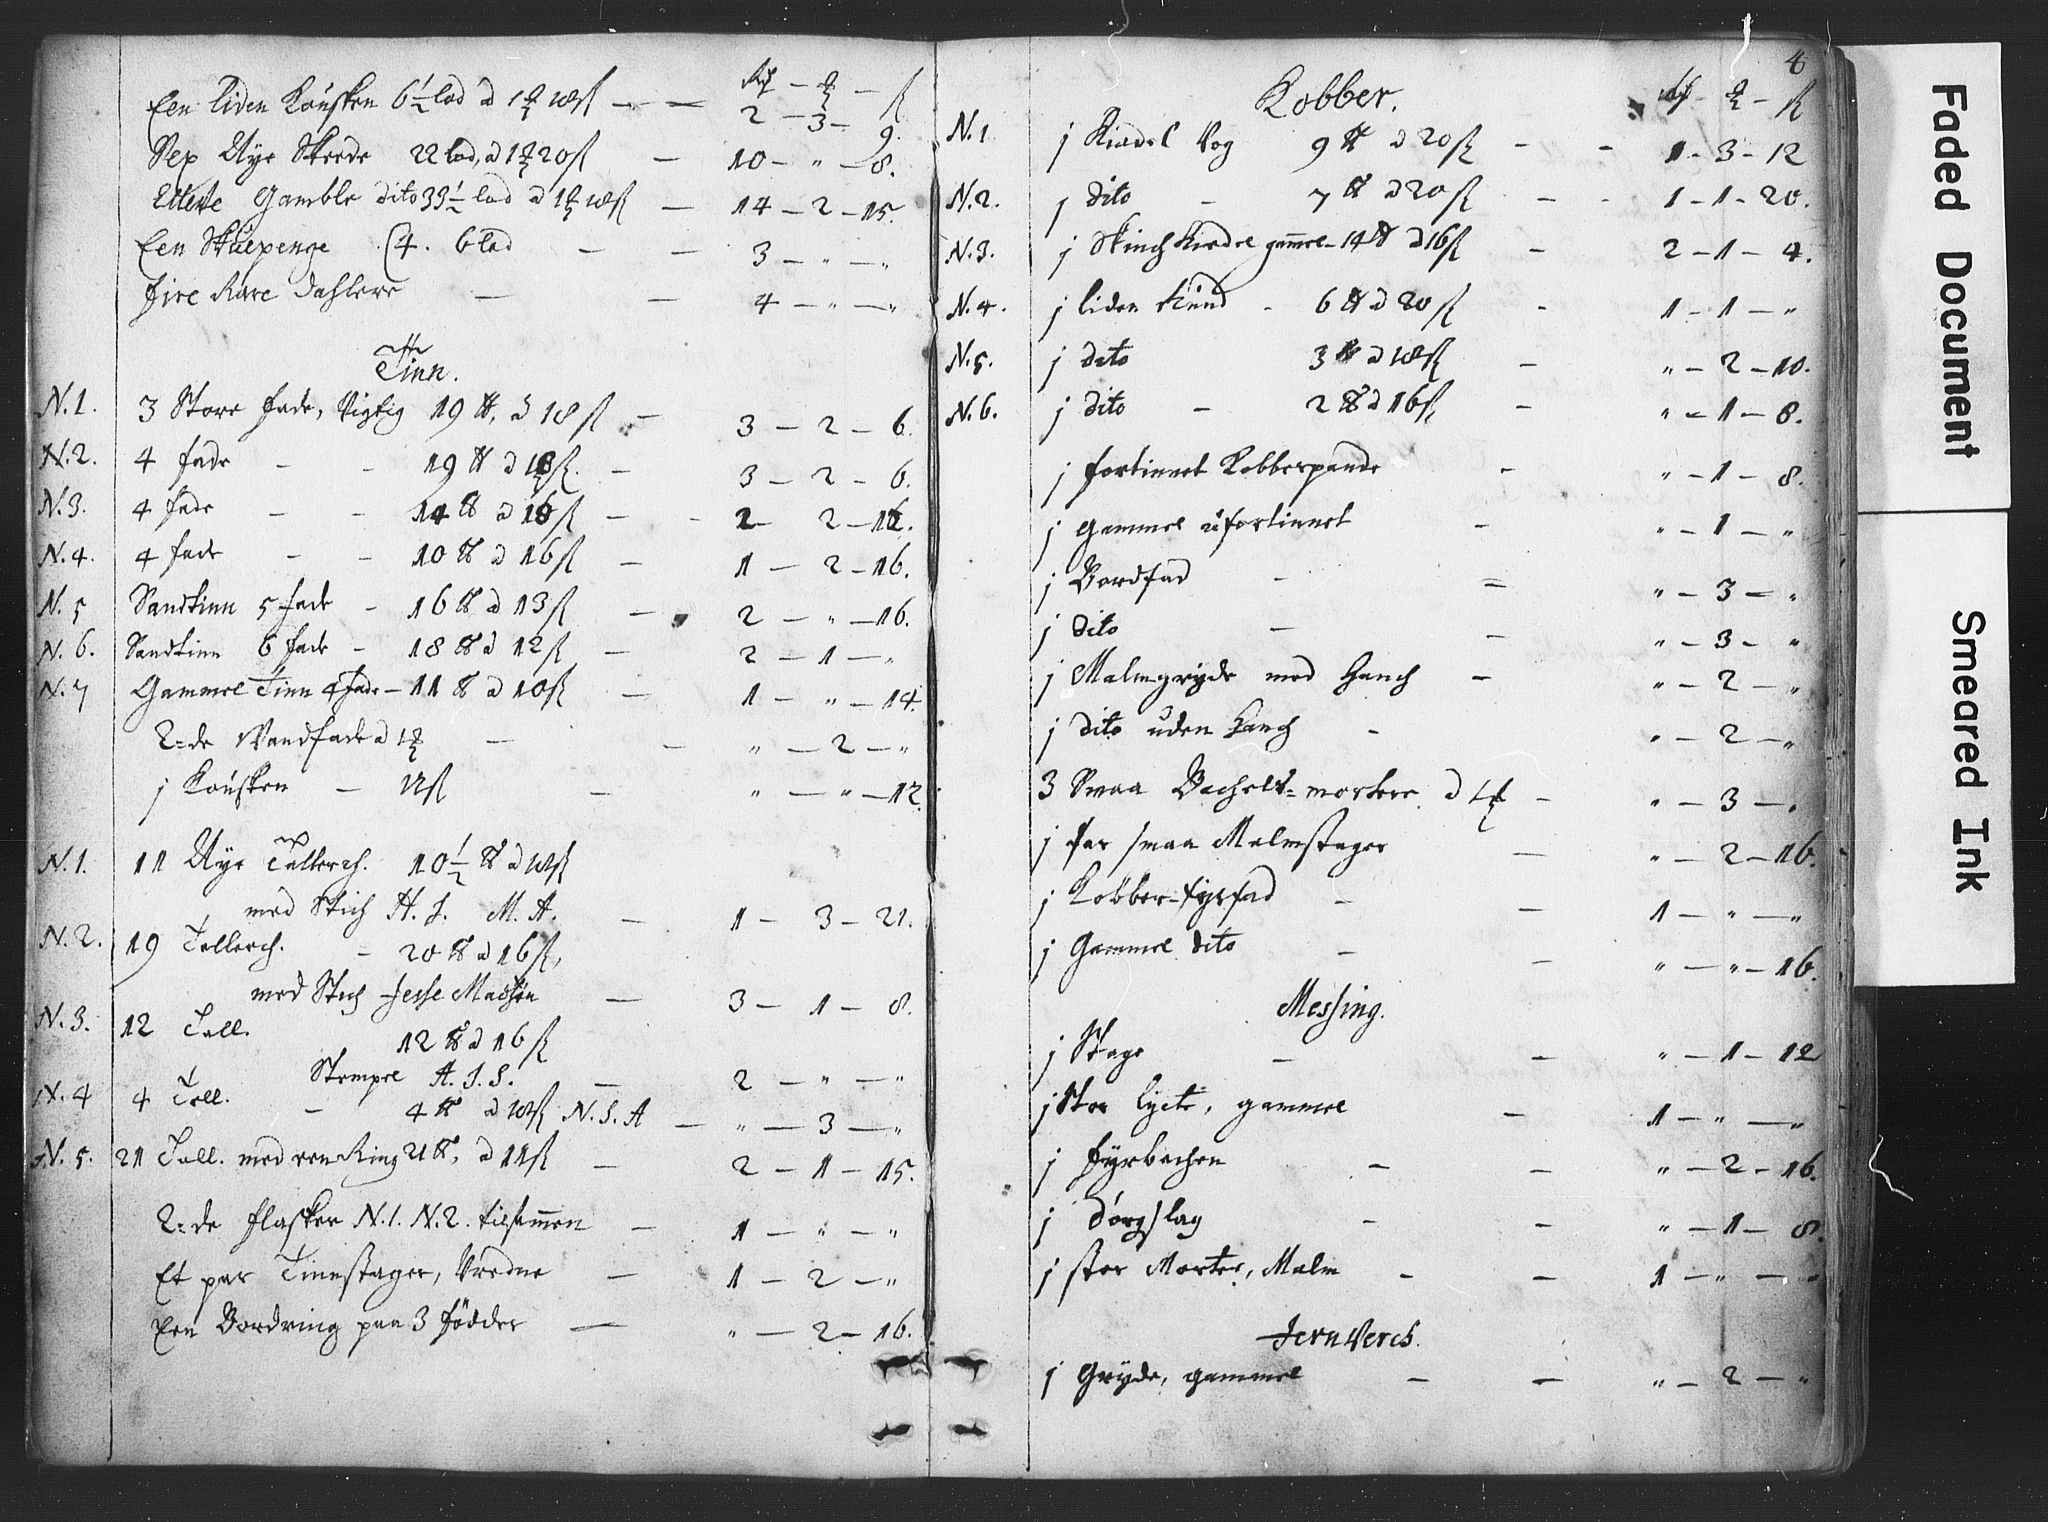 Rdl — ort — ß
Een liden Kousken 6½ lod a 1 ort 18 ß — 2 — 3 — 9.
Sex Nye Skeede 22 lod, a 1 ort 20 ß — 10 — " — 8.
Ellefve Gamble dito 33½ lod a 1 ort 18 ß — 14 — 2 — 15.
Een Skuepenge 4. 6 lod — 3 — " — "
fire Rare Dahlere — 4 — " — "
Tinn.
N. 1. 3 Store fade, Vigtig 19 ℔, a 18 ß — 3 — 2 — 6.
N. 2. 4 fade — 19 ℔ a 18 ß — 3 — 2 — 6.
N. 3. 4 fade — 14 ℔ a 16 ß — 2 — 16.
N. 4. 4 fade — 10 ℔ a 16 ß — 1 — 2 — 16.
N. 5 Sandtinn 5 fade — 16 ℔ a 13 ß — 2 — " — 16.
N. 6. Sandtinn 6 fade — 18 ℔ a 12 ß — 2 — 1 — "
N. 7 Gammel Tinn 4 fade — 11 ℔ a 10 ß — 1 — " — 14.
2=de Vandfade a 1 ort — " — 2 — "
j Kousken — 12 ß — " — " — 12.
N. 1. 11 Nye Tallerch. 10½ ℔ a 18 ß
med Stich H. J. M. A. — 1 — 3 — 21.
N. 2. 19 Tallerch. — 20 ℔ a 16 ß,
med Stich Jesse Madsøn — 3 — 1 — 8.
N. 3. 12 Tall. 12 ℔ a 16 ß
Stempel A. J. S. — 2 — " — "
N. 4 4 Tell. — 4 ℔ a 18 ß N. S. A — " — 3 — "
N. 5. 21 Tall. med een Ring 21 ℔, a 11 ß — 2 — 1 — 15.
2=de flasker N. 1. N. 2. tilsammen — 1 — " — "
Et par Tinnstager, Vredne — 1 — 2 — "
Een Bordring paa 3 födder — " — 2 — 16.
4
Kobber. Rdl — ort — ß
N. 1. j Kiedel Vog 9 ℔ a 20 ß — 1 — 3 — 12
N. 2. j dito — 7 ℔ a 20 ß — 1 — 1 — 20.
N. 3. j Skinchkiedel gammel — 14 ℔ a 16 ß — 2 — 1 — 4.
N. 4. j liden Rund — 6 ℔ a 20 ß — 1 — 1 — "
N. 5. j dito 3 ℔ a 18 ß — " — 2 — 10.
N. 6. j dito — 2 ℔ a 16 ß, — " — 1 — 8.
j fortinnet Kobberpande — " — 1 — 8.
j gammel ufortinnet — " — 1 — "
j Bordfad — " — 3 — "
j dito — " — 3 — "
j Malmgryde med Hanch — " — 2 — "
j dito uden Hanch — " — 2 — "
3 Smaa Bechelt=mortere a 1 ort — " — 3 — "
j par smaa Malmstager — " — 2 — 16.
j Kobber-fyrfad — 1 — " — "
j Gammel dito — " — " — 16.
Messing.
j Stage — " — 1 — 12
j Stor lycte, gammel — 1 — " — "
j fyrbechen — " — 2 — 16.
j Dørgslag — " — 1 — 8.
j stor Morter, Malm — 1 — " — "
JernVerch.
j Gryde, gammel — " — 2 — "
Faded Document
Smeared Ink